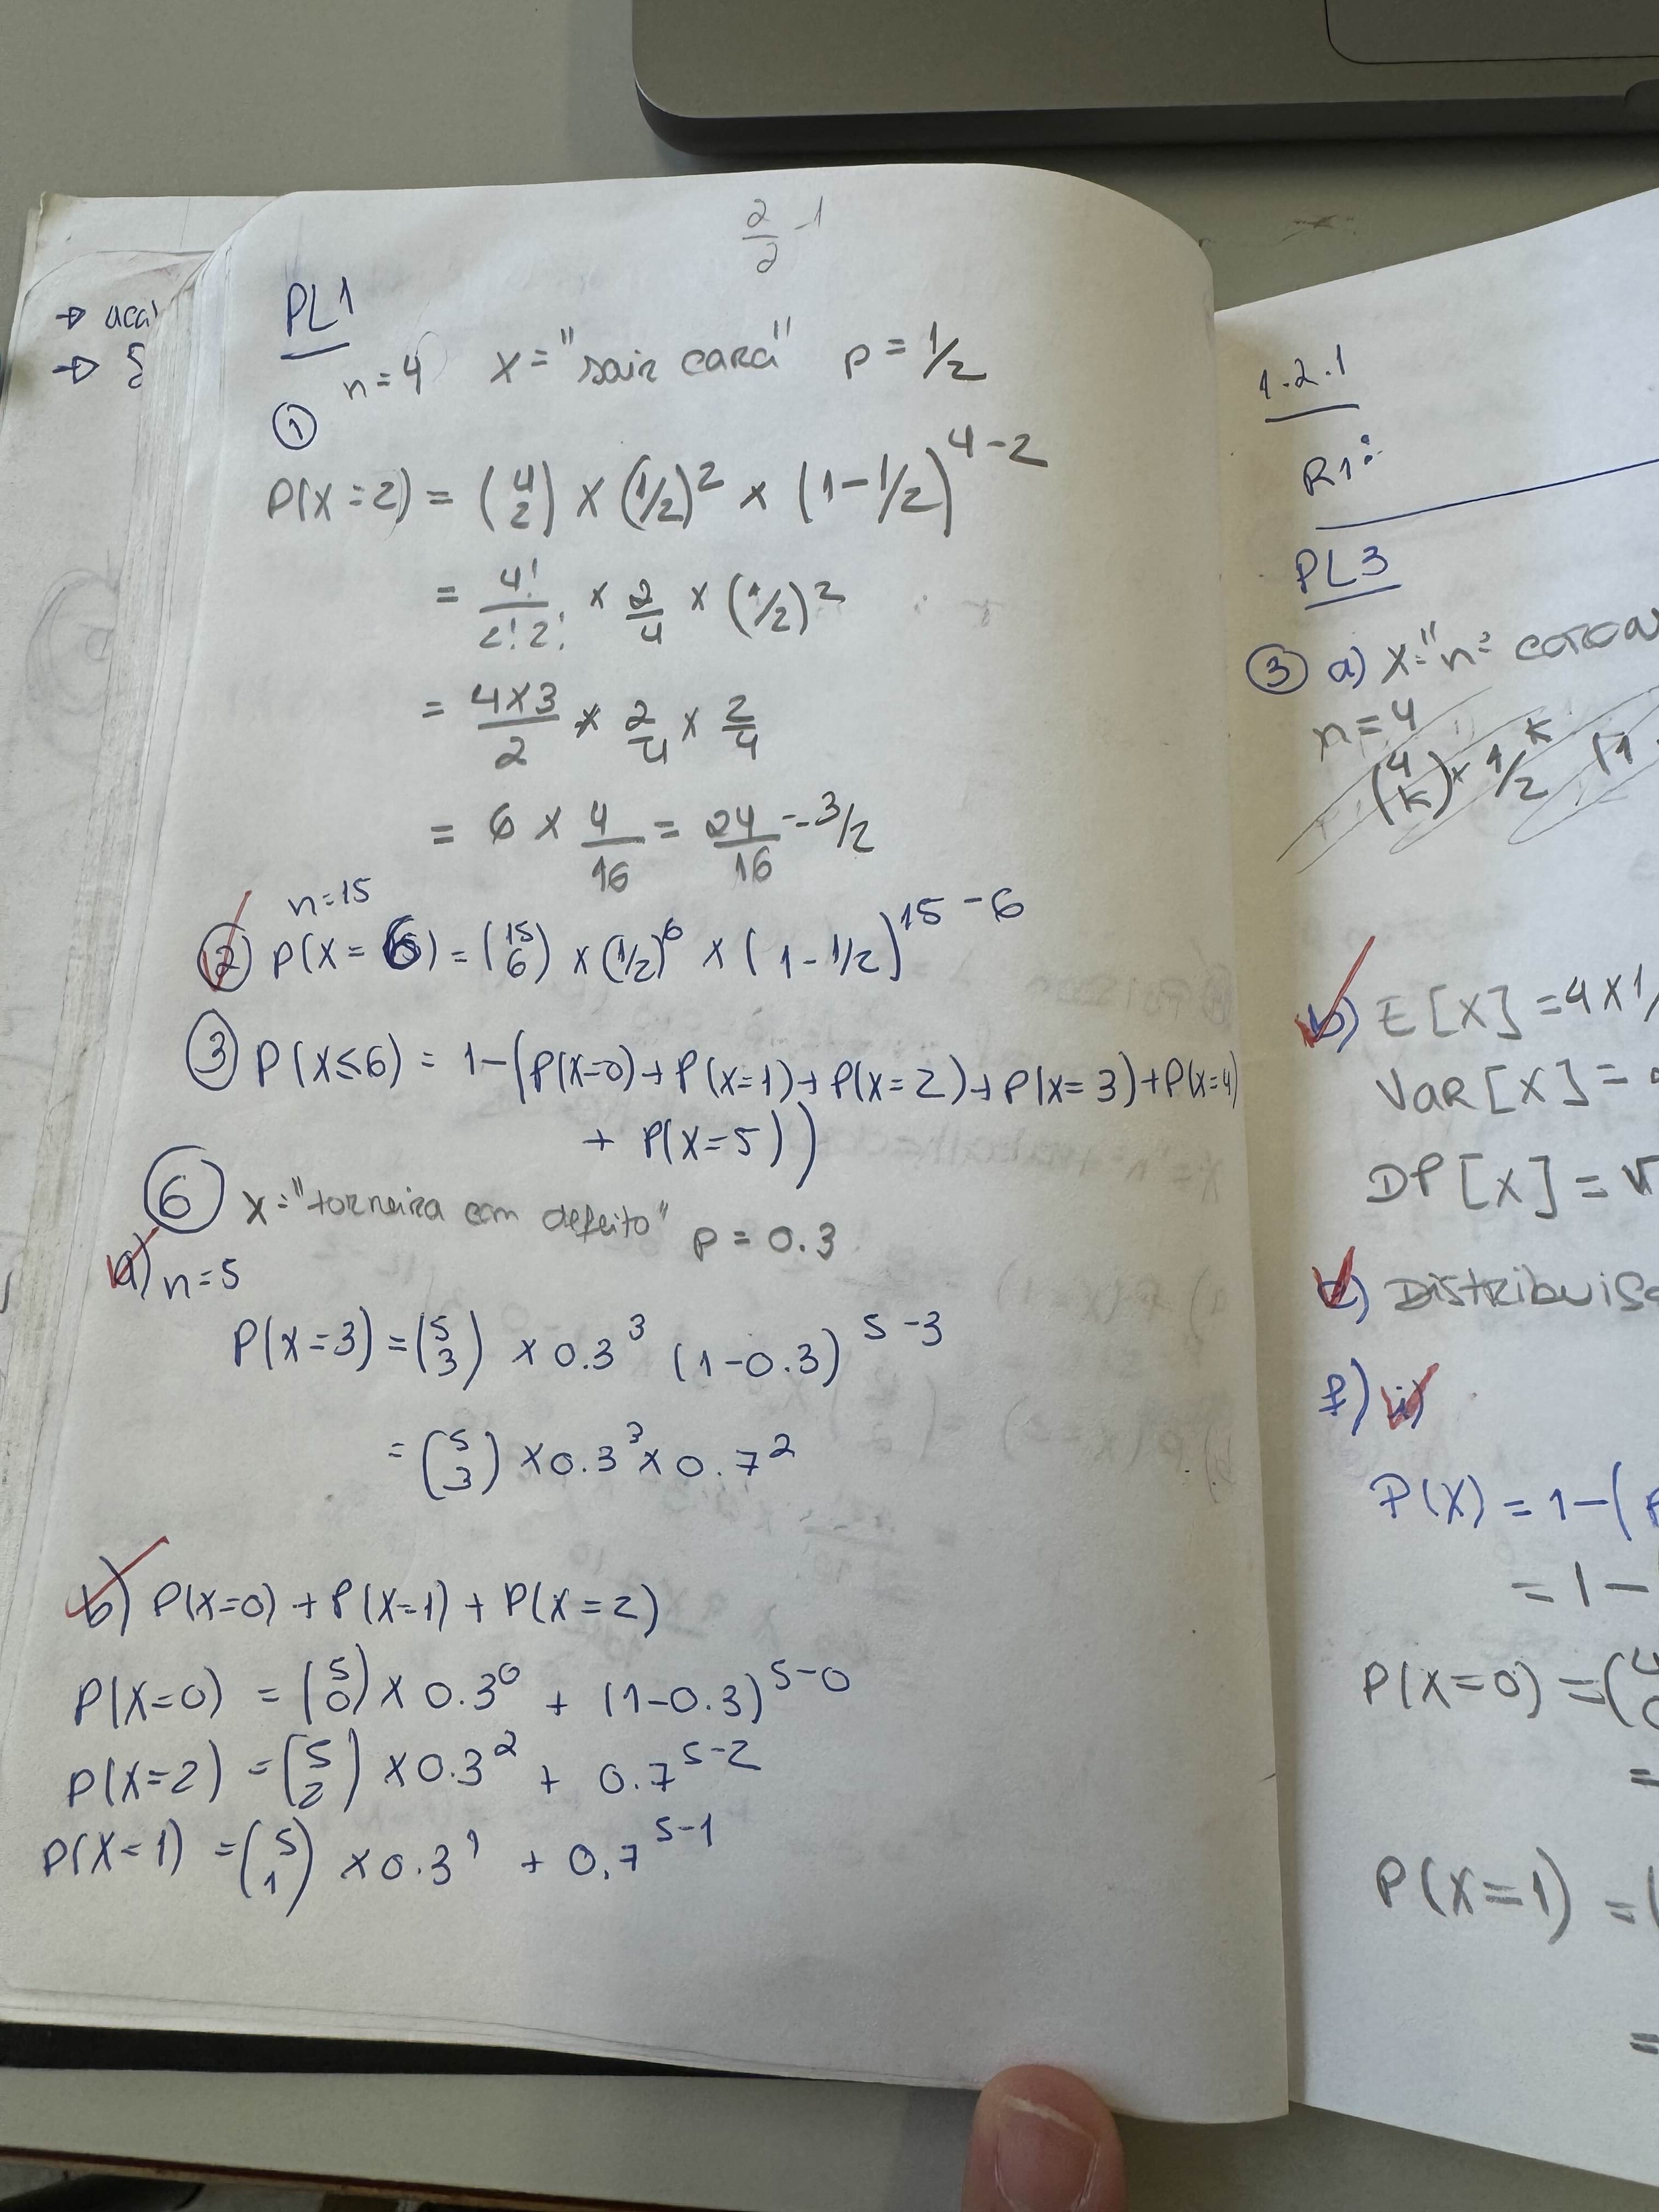 2/2 - 1
→ aca
→
PL1
n=4 x="sair cara" p = 1/2
①
P(X=2) = (4 2) × (1/2)² × (1-1/2)^4-2
= 4!/2!2! × 2/4 × (1/2)²
= 4×3/2 × 2/4 × 2/4
= 6 × 4/16 = 24/16 = 3/2
n=15
② P(X=6) = (15 6) × (1/2)^6 × (1-1/2)^15-6
③ P(X≤6) = 1-(P(X=0)+P(X=1)+P(X=2)+P(X=3)+P(X=4)
+ P(X=5))
⑥ X="torneira com defeito" p = 0.3
a) n=5
P(X=3) = (5 3) × 0.3³ (1-0.3)^5-3
= (5 3) × 0.3³ × 0.7²
b) P(X=0) + P(X=1) + P(X=2)
P(X=0) = (5 0) × 0.3⁰ + (1-0.3)^5-0
P(X=2) = (5 2) × 0.3² + 0.7^5-2
P(X=1) = (5 1) × 0.3¹ + 0.7^5-1
1.2.1
R1:
PL3
③ a) X="nº coroa
n=4
(4 k) × 1/2^k (1
b) E[X] = 4×1/
VAR[X] =
DP[X] = √
c) Distribuiçã
f) i)
P(X) = 1-(P
= 1-
P(X=0) = (4 0
=
P(X=1) = (
=